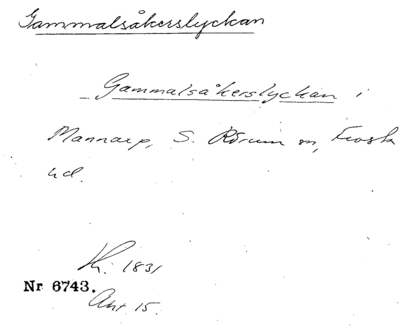 Gammalsåkerslyckan
Gammalsåkerslyckan i
Mannarp, S. Rörum sn, Frosta
hd.
Kr. 1831
Nr 6743.
Akt 15.